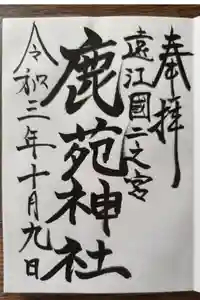 奉拝
遠江國二之宮
鹿苑神社
令和三年十月九日